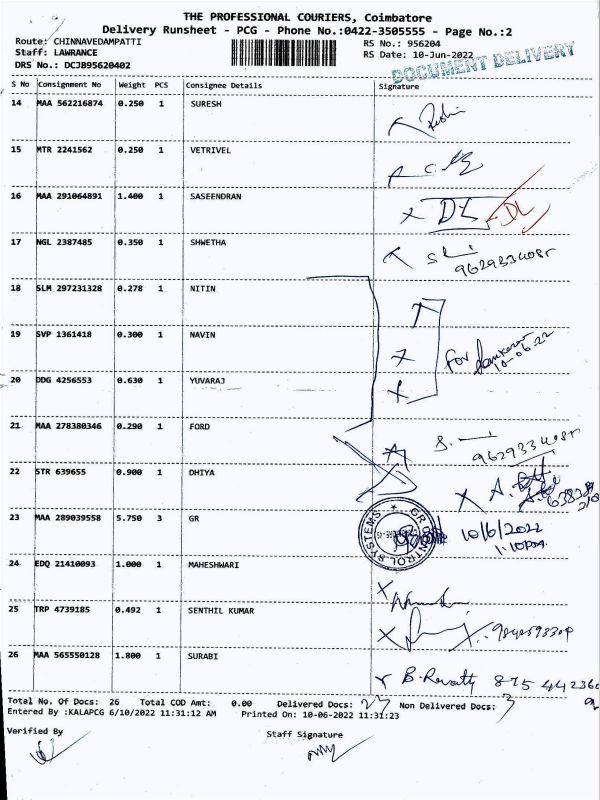 THE PROFESSIONAL COURIERS, Coimbatore
Delivery Runsheet - PCG - Phone No.:0422-3505555 - Page No.:2
Route: CHINNAVEDAMPATTI
RS No.: 956204
Staff: LAWRANCE
RS Date: 10-Jun-2022
DRS No.: DCJB95620402
DOCUMENT DELIVERY
S No Consignment No Weight PCS Consignee Details Signature
14 MAA 562216874 0.250 1 SURESH
15 MTR 2241562 0.250 1 VETRIVEL
16 MAA 291064891 1.400 1 SASEENDRAN DL DL
17 NGL 2387485 0.350 1 SHWETHA
18 SLM 297231328 0.278 1 NITIN
19 SVP 1361418 0.300 1 NAVIN
for
10-06-22
20 DDG 4256553 0.630 1 YUVARAJ
21 MAA 278380346 0.290 1 FORD
22 STR 639655 0.900 1 DHIYA
23 MAA 289039558 5.750 3 GR
GR CONTROL SYSTEMS
10/6/2022
1:10pm
24 EDQ 21410093 1.000 1 MAHESHWARI
25 TRP 4739185 0.492 1 SENTHIL KUMAR
26 MAA 565550128 1.800 1 SURABI
B. Revathy 875 442360
Total No. Of Docs: 26 Total COD Amt: 0.00 Delivered Docs: 23 Non Delivered Docs: 3
Entered By :KALAPCG 6/10/2022 11:31:12 AM Printed On: 10-06-2022 11:31:23
Verified By
Staff Signature